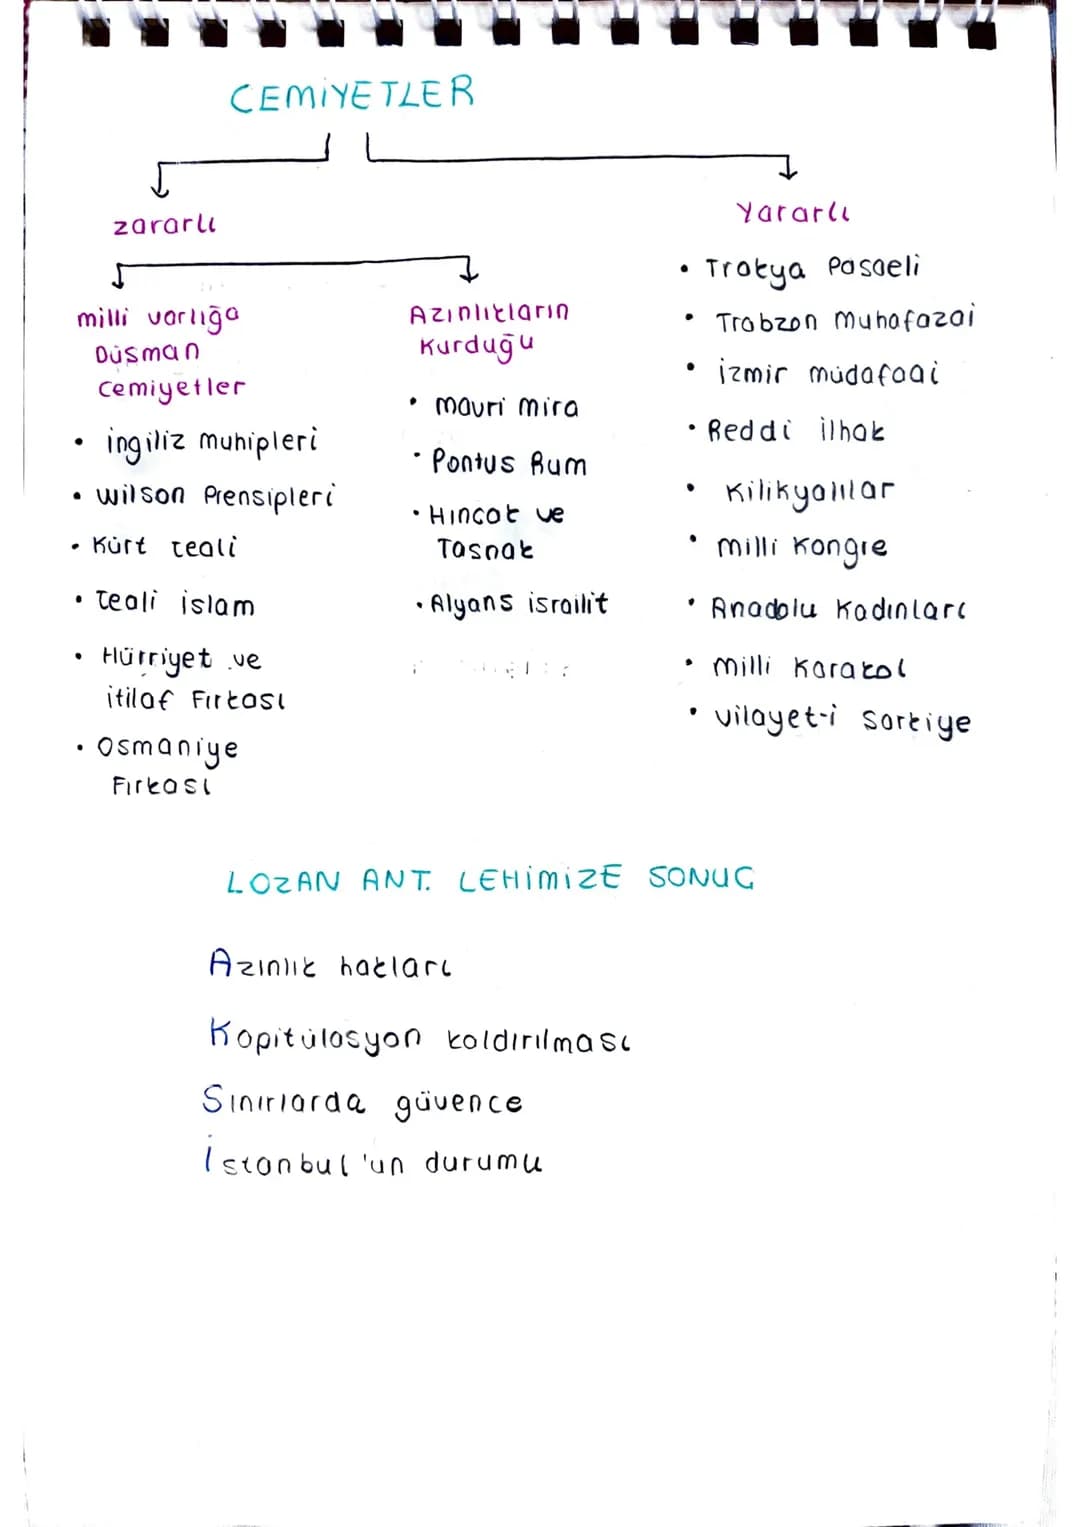 CEMİYETLER
zararlı
milli varlığa
Düşman
cemiyetler
• ingiliz muhipleri
• wilson Prensipleri
• Kürt teali
• teali islam
• Hürriyet ve
itilaf Fırkası
• Osmaniye
Fırkası
Azınlıkların
Kurduğu
• mavri mira
• Pontus Rum
• Hıncak ve
Taşnak
• Alyans israilit
Yararlı
• Trakya Paşaeli
• Trabzon muhafazai
• izmir müdafaai
• Reddi ilhak
• Kilikyalılar
• milli kongre
• Anadolu Kadınları
• milli Karakol
• vilayet-i Şarkiye
LOZAN ANT. LEHİMİZE SONUÇ
Azınlık hakları
Kapitülasyon kaldırılması
Sınırlarda güvence
İstanbul'un durumu